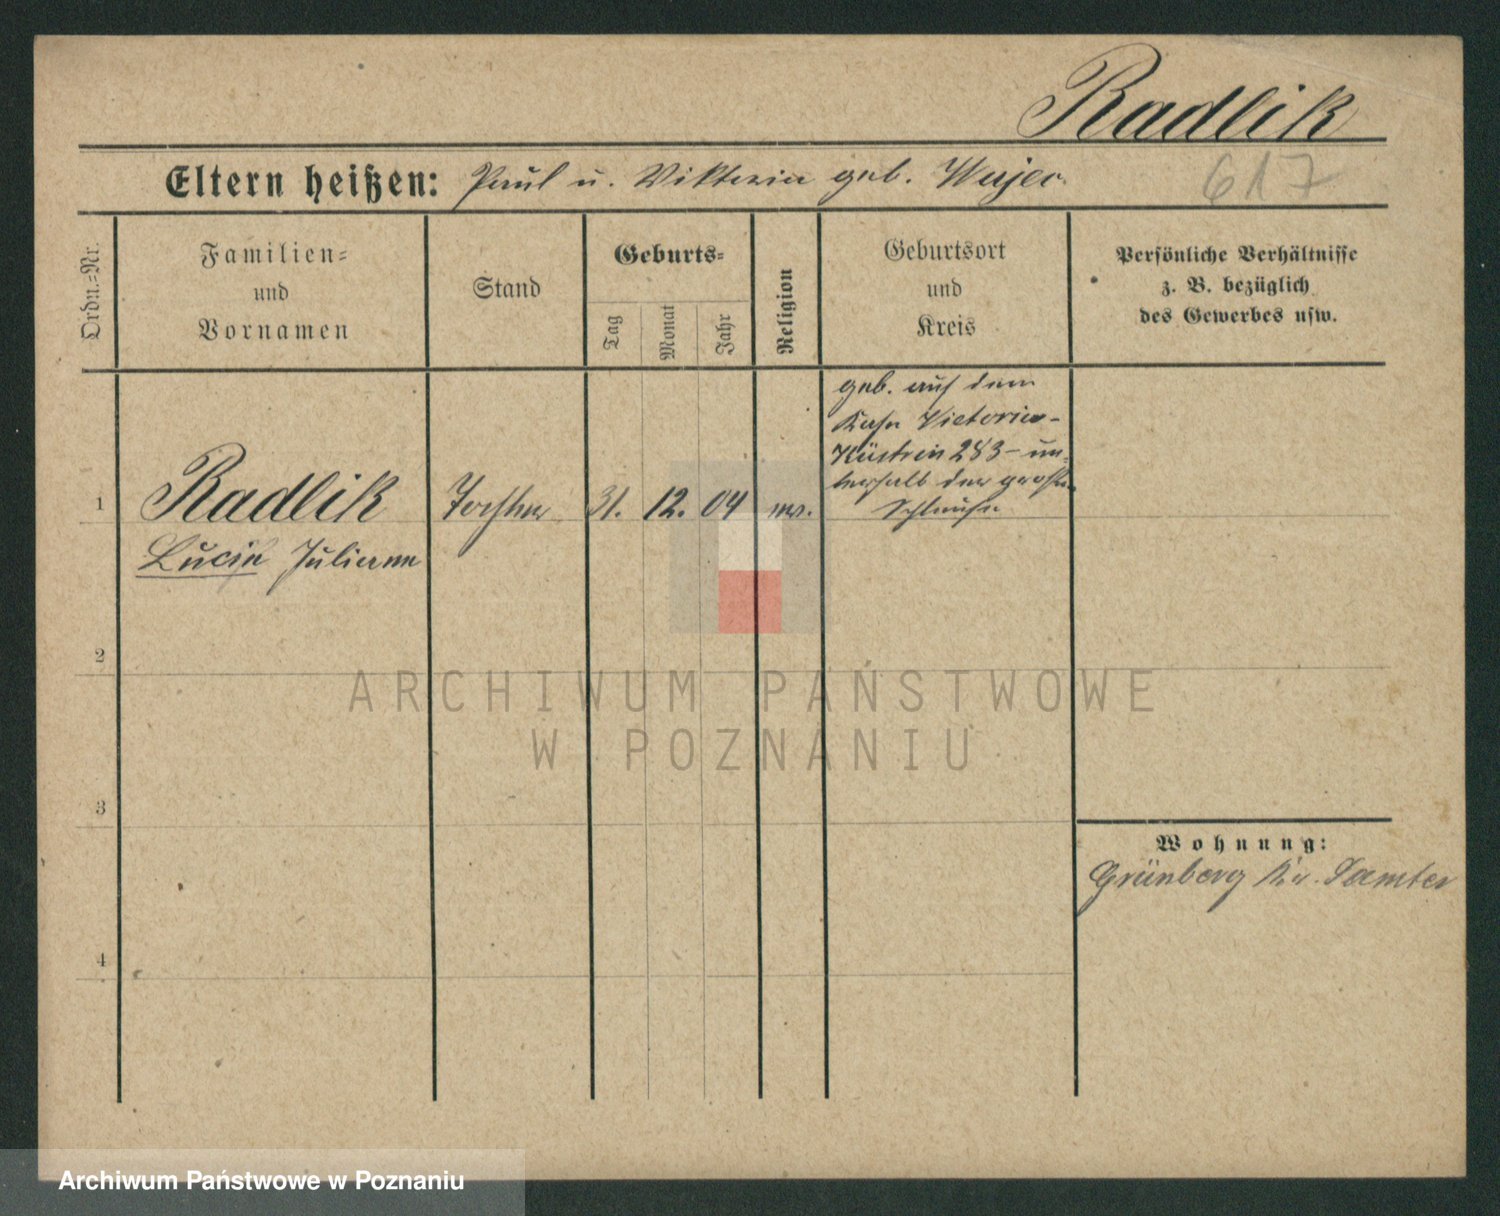 Radlik
Eltern heißen: Paul u. Viktoria geb. Wujec
617
Ordn.=Nr.
Familien=
und
Vornamen
Stand
Geburts=
Tag
Monat
Jahr
Religion
Geburtsort
und
Kreis
Persönliche Verhältnisse
z. B. bezüglich
des Gewerbes usw.
1
Radlik
Lucie Julianne
Tochter
31.
12.
04
geb. auf dem
Kahn Victoria-
Küstrin 283 - un-
terhalb der großen
Schleuse
2
3
4
Wohnung:
Grünberg Kr. Samter
ARCHIWUM PAŃSTWOWE
W POZNANIU
Archiwum Państwowe w Poznaniu